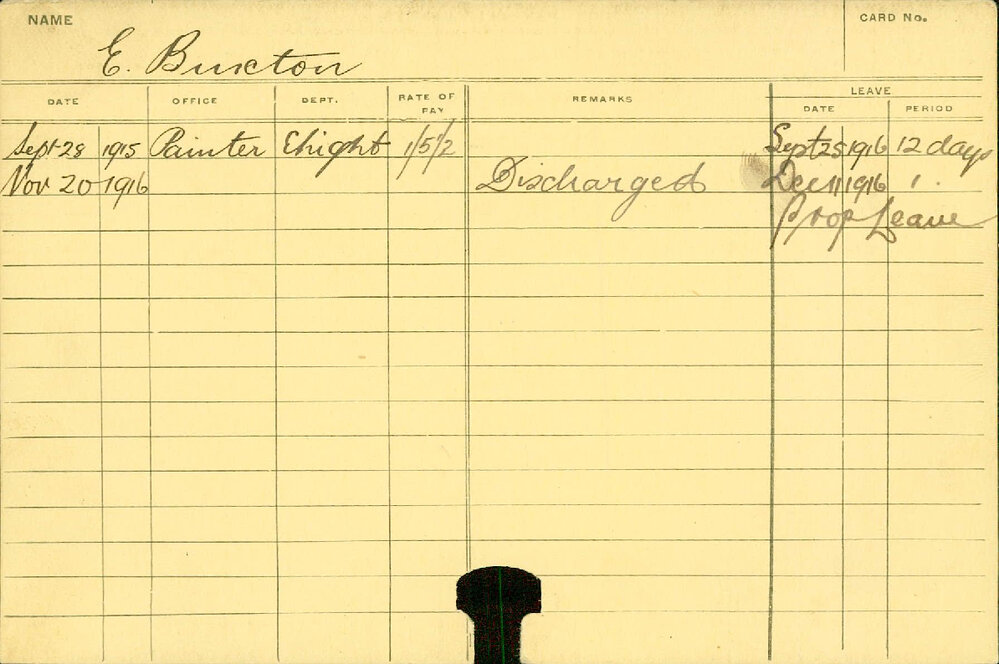 NAME CARD No.
E. Buxton
DATE OFFICE DEPT. RATE OF PAY REMARKS LEAVE
DATE PERIOD
Sept 28 1915 Painter Elright 1/5½ Sept 25 1916 12 days
Nov 20 1916 Discharged Dec 11 1916 1.
Prop Leave